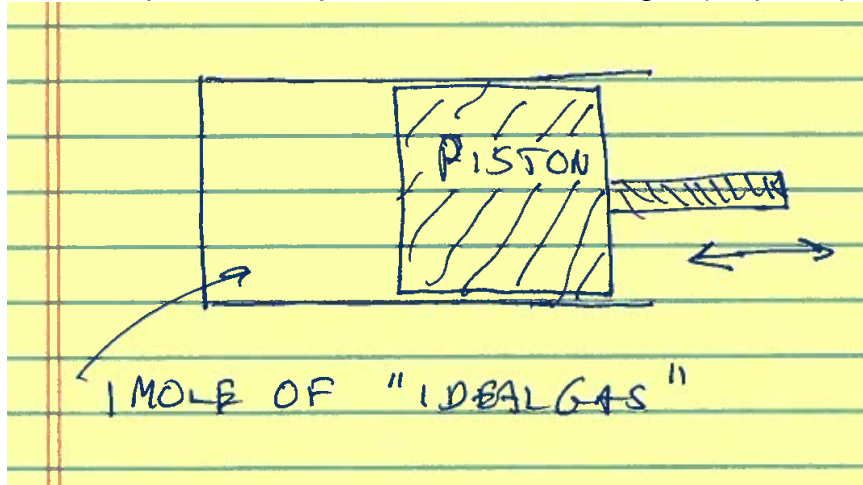 PISTON
1 MOLE OF "IDEAL GAS"